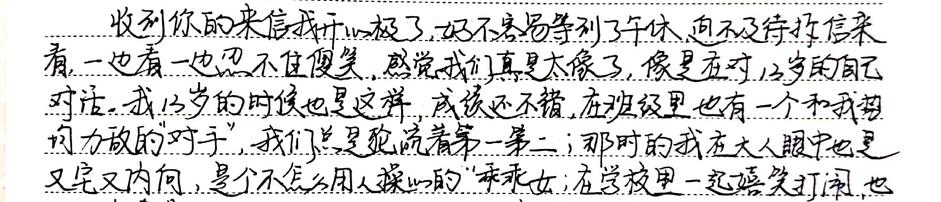 收到你的来信我开心极了,好不容易等到了午休,迫不及待拆信来
看,一边看一边忍不住傻笑,感觉我们真是太像了,像是在对13岁的自己
对话。我13岁的时候也是这样,成绩还不错,在班级里也有一个和我势
均力敌的“对手”,我们总是轮流着第一第二;那时的我在大人眼中也是
又宅又内向,是个不怎么用人操心的“乖乖女;在学校里一起嬉笑打闹,也